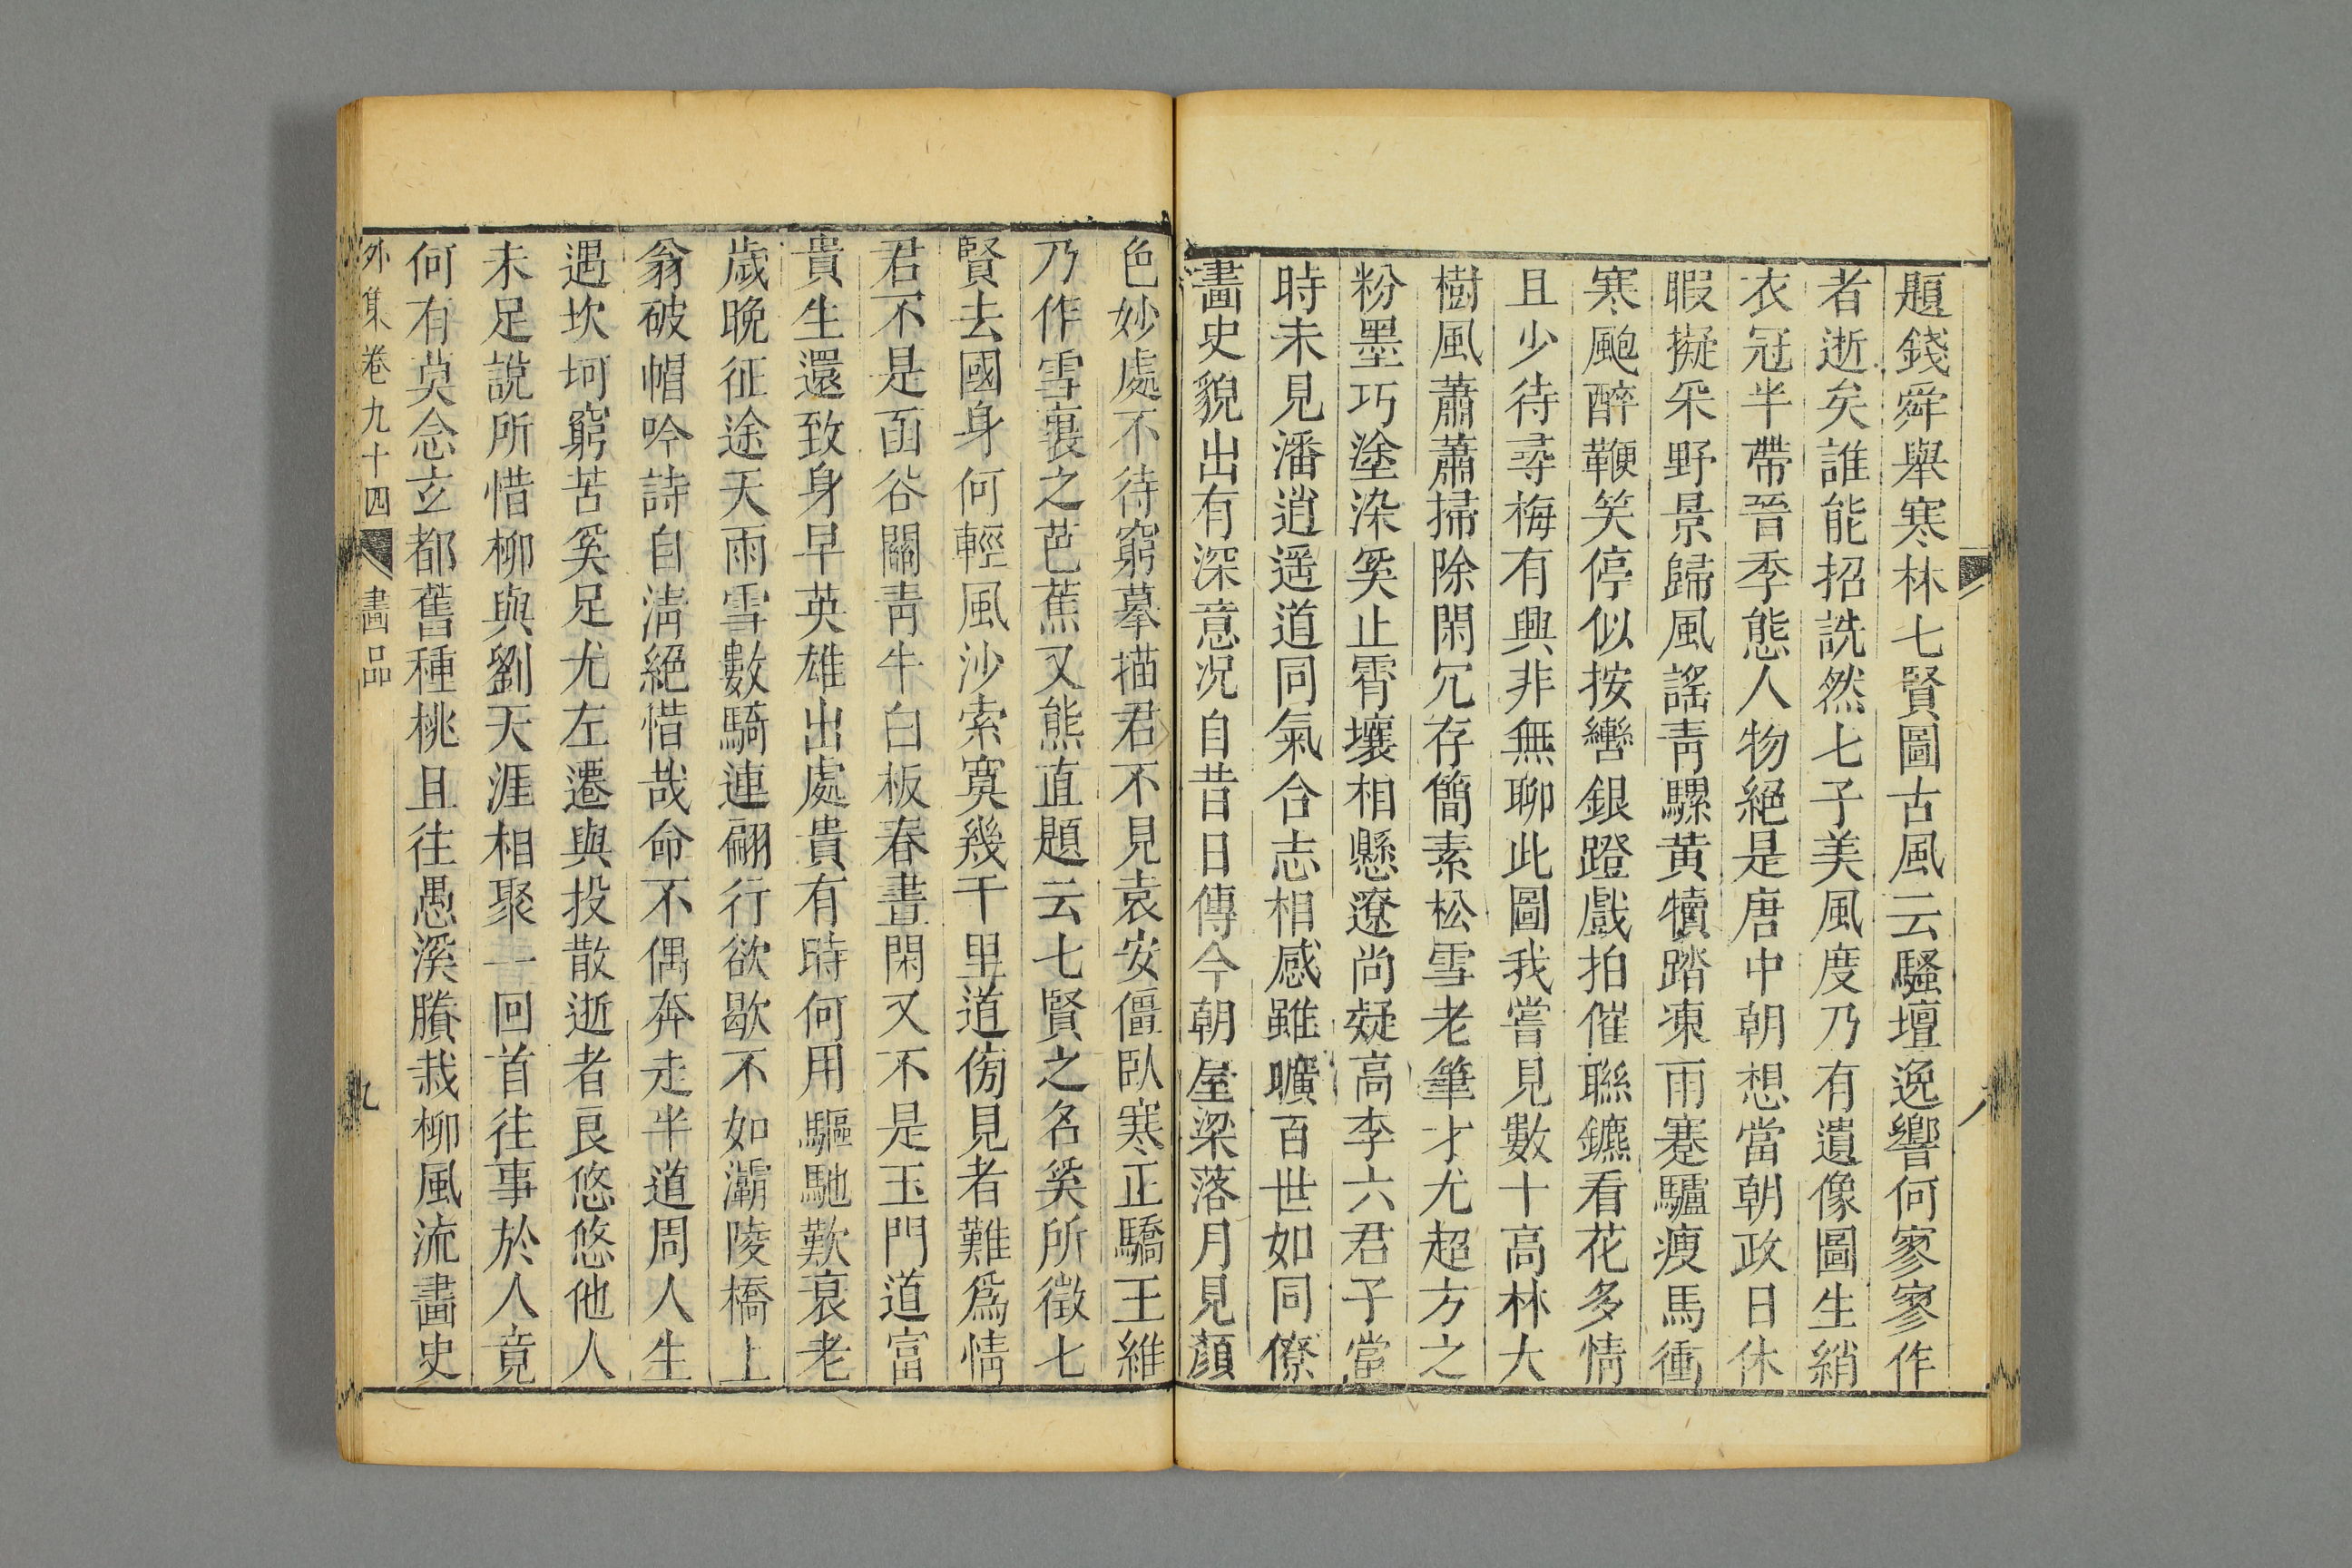 題錢舜舉寒林七賢圖古風云騷壇逸響何寥寥作
者逝矣誰能招詵然七子美風度乃有遺像圖生綃
衣冠半帶晉季態人物絕是唐中朝想當朝政日休
暇擬采野景歸風謠青騾黃犢踏凍雨蹇驢瘦馬衝
寒颮醉鞭笑停似按轡銀蹬戲拍催聯鑣看花多情
且少待尋梅有興非無聊此圖我嘗見數十高林大
樹風蕭蕭掃除閑冗存簡素松雪老筆才尤超方之
粉墨巧塗染奚止霄壤相懸遼尚疑高李六君子當
時未見潘逍遥道同氣合志相感雖曠百世如同僚
畫史貌出有深意況自昔日傳今朝屋梁落月見顏
色妙處不待窮摹描君不見袁安僵臥寒正驕王維
乃作雪裏之芭蕉又熊直題云七賢之名奚所徵七
賢去國身何輕風沙索寞幾千里道傍見者難爲情
君不是函谷關青牛白板春晝閑又不是玉門道富
貴生還致身早英雄出處貴有時何用驅馳歎衰老
歲晚征途天雨雪數騎連翩行欲歇不如灞陵橋上
翁破帽吟詩自淸絕惜哉命不偶奔走半道周人生
遇坎坷窮苦奚足尤左遷與投散逝者良悠悠他人
未足說所惜柳與劉天涯相聚一回首往事於人竟
何有莫念玄都舊種桃且往愚溪賸栽柳風流畫史
外集卷九十四 畫品 九